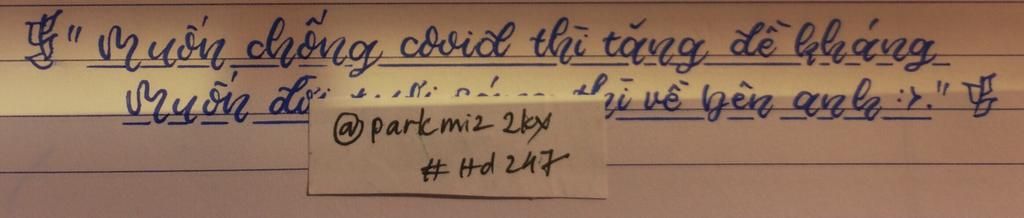 " Muốn chống covid thì tăng đề kháng
Muốn đời tươi sáng thì về bên anh :>."
@parkmi2 2kx
# Hd 247